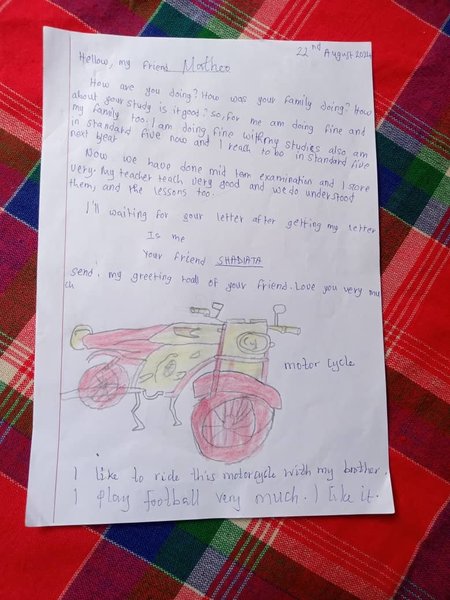 22nd August 2024
Hellow, my friend Matheo
How are you doing? How was your family doing? How
about your study is it good? so, for me am doing fine and
my family too. I am doing fine with my studies also am
in standard five now and I reach to be in standard five
next year
Now. we have done mid tem examination and I store
very. My teacher teach very good and we do understood
them, and the lessons too.
I'll waiting for your letter after getting my letter
Is me
Your friend SHADIATA
send. my greeting to all of your friend. Love you very mu
ch
motor cycle
I like to ride this motorcycle with my brother.
I play football very much. I like it.